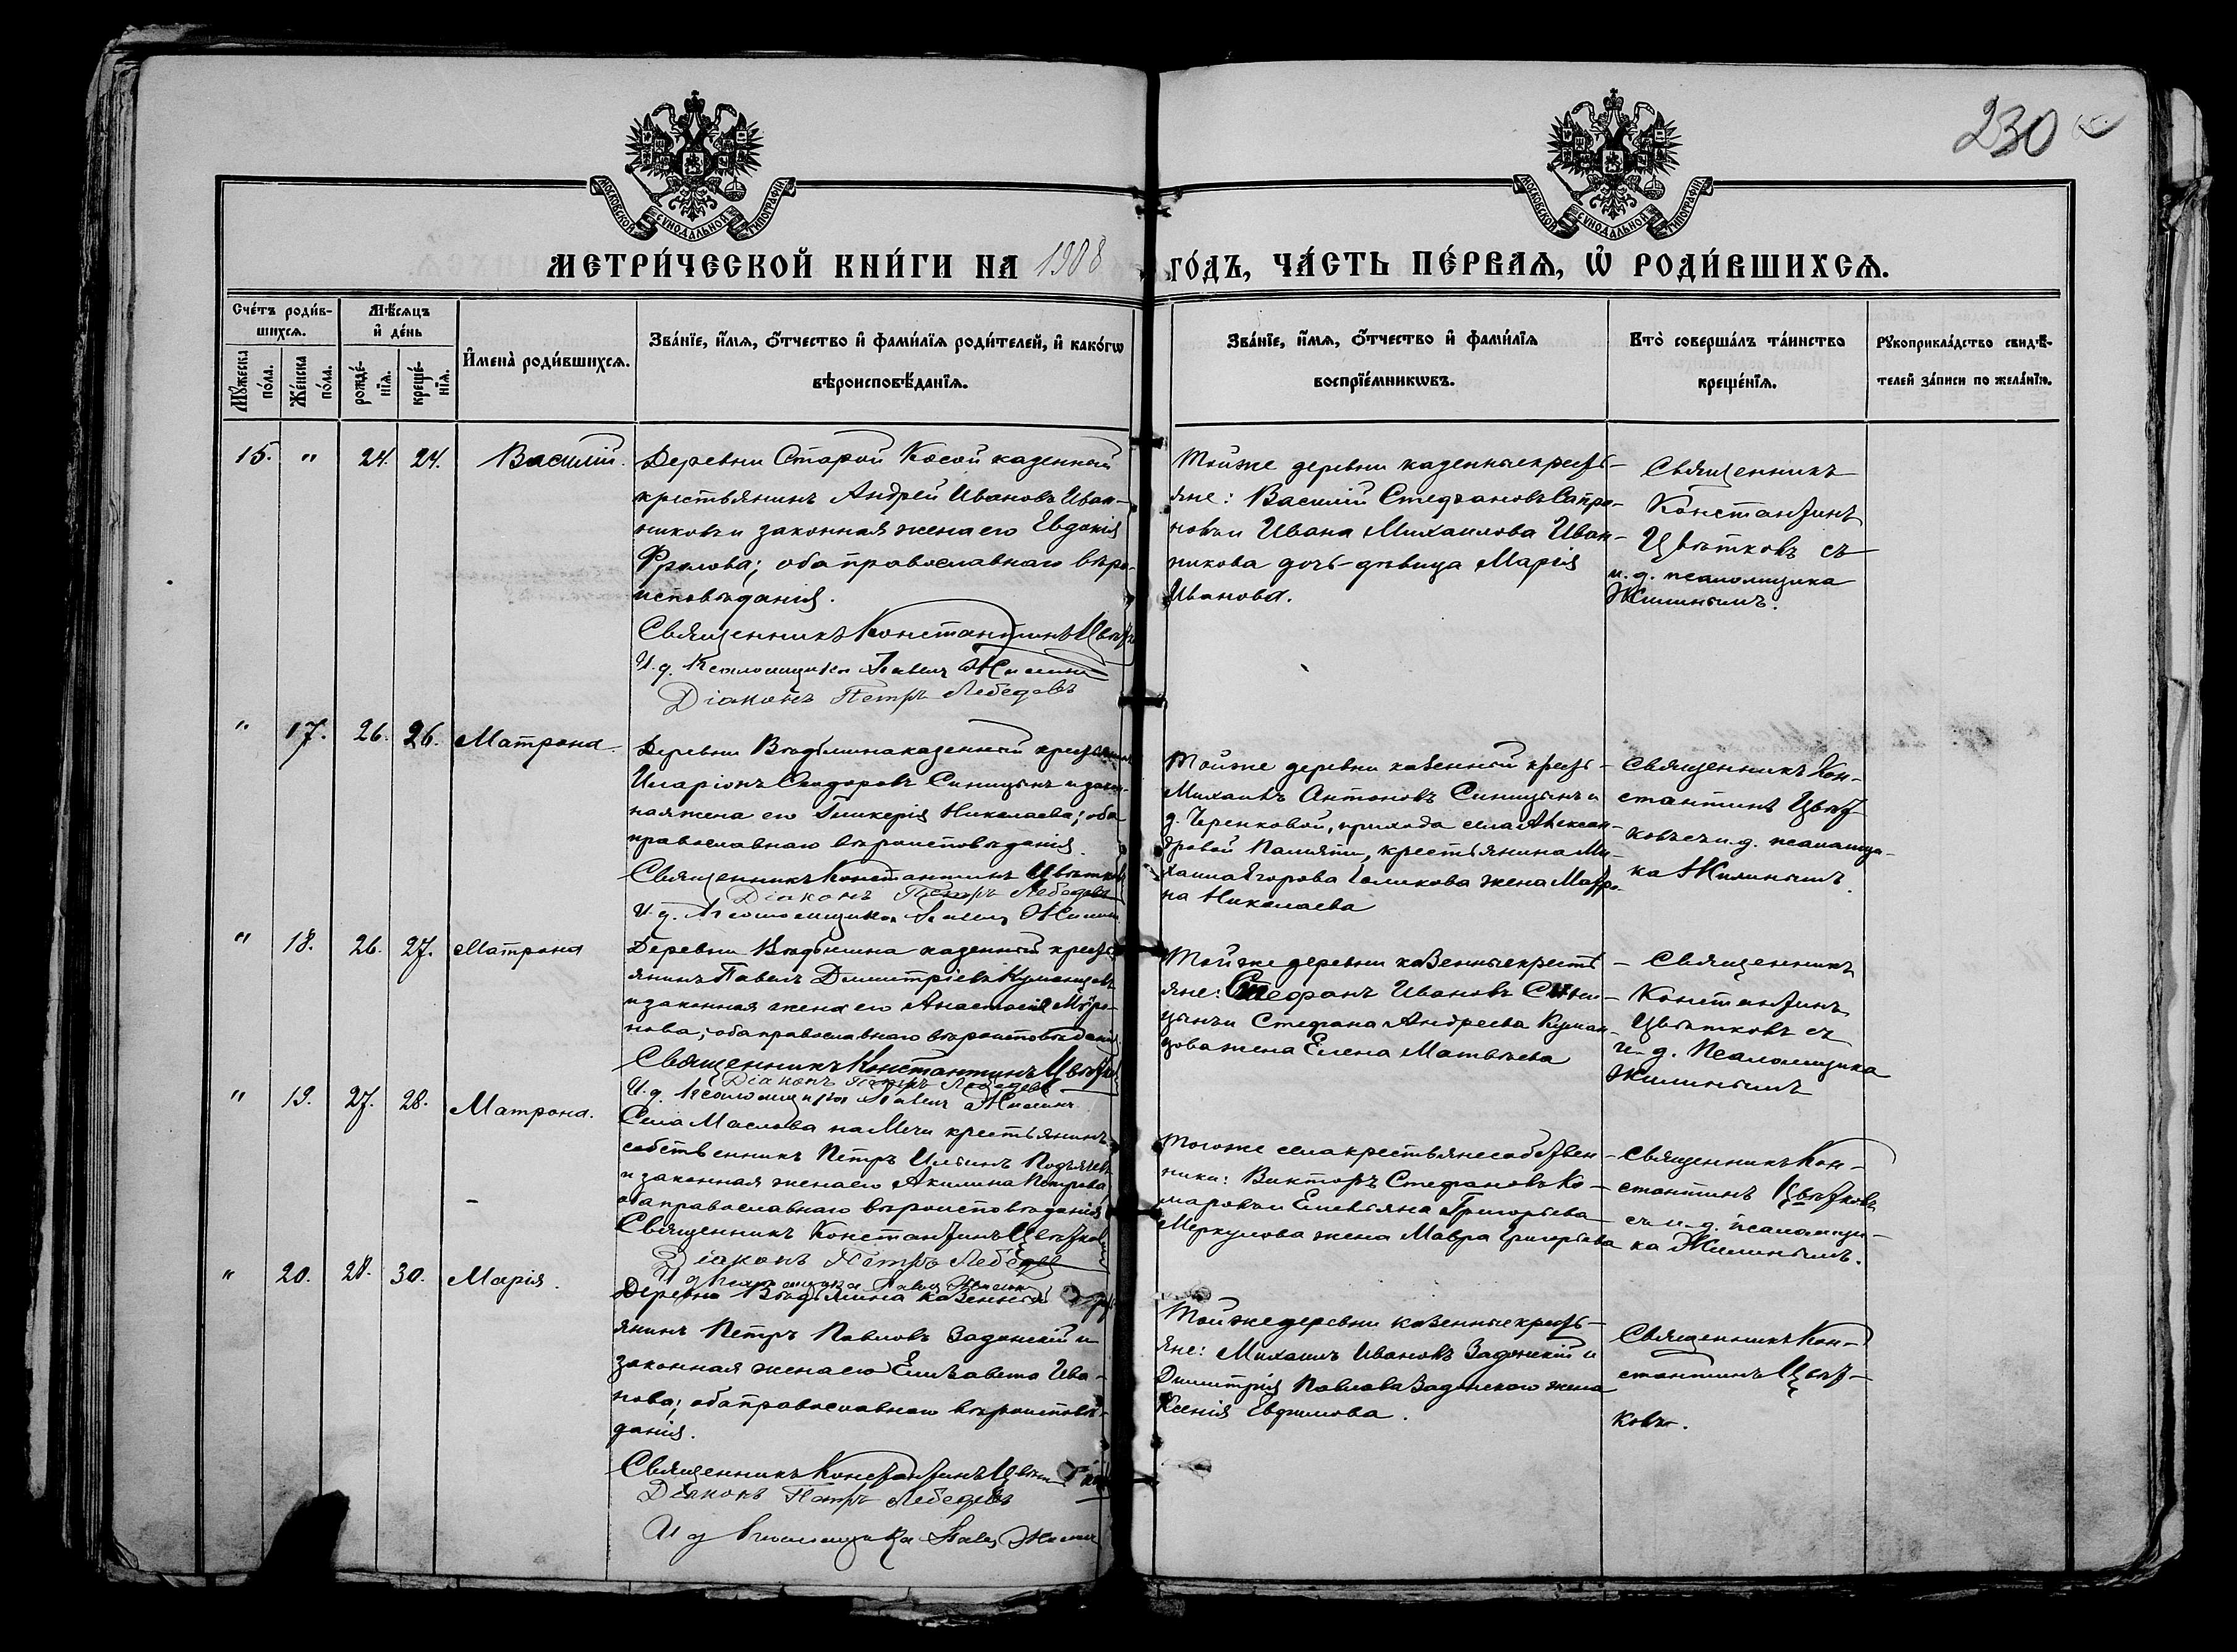 230
МОСКОВСКОЙ СѴНОДАЛЬНОЙ ТИПОГРАФІИ
МОСКОВСКОЙ СѴНОДАЛЬНОЙ ТИПОГРАФІИ
МЕТРИ́ЧЕСКОЙ КНИ́ГИ НА 1908 ГО́ДЪ, ЧА́СТЬ ПЕ́РВАѦ, Ѡ РОДИ́ВШИХСѦ.
Сче́тъ роди́вшихсѧ.
Мꙋжеска по́ла.
Же́нска по́ла.
Мѣ́сѧцъ и де́нь
рожде́нїѧ.
креще́нїѧ.
И҆мена̀ роди́вшихсѧ.
Зва́нїе, и҆́мѧ, ѻ҆́тчество и҆ фами́лїѧ роди́телей, и҆ како́гѡ
вѣроисповѣ́данїѧ.
Зва́нїе, и҆́мѧ, ѻ҆́тчество и҆ фами́лїѧ
воспрїе́мникѡвъ.
Кто̀ соверша́лъ та́инство
креще́нїѧ.
Рꙋкоприкла́дство свидѣ́-
телей за́писи по жела́нїю.
15. " 24. 24. Василій.
Деревни Старой Косой казенный
крестьянинъ Андрей Ивановъ Иван-
никовъ и законная жена его Евдокія
Фролова; оба православнаго вѣро-
исповѣданія.
Священникъ Константинъ Цвѣтк
И.д. Псаломщика Павелъ Жилинъ
Діаконъ Петръ Лебедевъ
Тойже деревни казенные кресть-
яне: Василій Стефановъ Сапро-
новъ и Ивана Михаилова Иван-
никова дочь-дѣвица Марія
Иванова.
Священникъ
Константинъ
Цвѣтковъ съ
и.д. псаломщика
Жилинымъ.
" 17. 26. 26. Матрона
Деревни казенный
Иларіонъ Сидоровъ Синицынъ и закон-
ная жена его Гликерія Николаева; оба
православнаго вѣроисповѣданія.
Священникъ Константинъ Цвѣтковъ
Діаконъ Петръ Лебедевъ
И.д. Псаломщика Павелъ Жилинъ
Тойже деревни казенный кресть-
Михаилъ Антоновъ Синицынъ и
д. Черенковой, прихода села Алексан-
дровой Паляти, крестьянина Ми-
хаила Егорова Голикова жена Матро-
на Николаева
Священникъ Кон-
стантинъ Цвѣт-
ковъ съ и.д. псаломщи-
ка Жилинымъ.
" 18. 26. 27. Матрона
Деревни казенный кресть-
янинъ Павелъ Димитріевъ
и законная жена его Анастасія Мѵро-
нова; оба православнаго вѣроисповѣданія.
Священникъ Константинъ Цвѣтков
Діаконъ Петръ Лебедевъ
И.д. Псаломщика Павелъ Жилинъ
Тойже деревни казенные кресть-
яне: Стефанъ Ивановъ Сини-
цынъ и Стефана Андреева Куман-
цова жена Елена Матвѣева
Священникъ
Константинъ
Цвѣтковъ съ
и.д. Псаломщика
Жилинымъ
" 19. 27. 28. Матрона.
Села Маслова на Мечи крестьянинъ
собственникъ Петръ Ильинъ
и законная жена его Акилина Петрова
оба православнаго вѣроисповѣданія
Священникъ Константинъ Цвѣтков
Діаконъ Петръ Лебедев
И д Псаломщика Павелъ Жилинъ
Тогоже села крестьяне собствен-
ники: Викторъ Стефановъ Ко-
маровъ и Емельяна Григорьева
Меркулова жена Мавра Григорьева
Священникъ Кон-
стантинъ Цвѣтковъ
съ и.д. псаломщи-
ка Жилинымъ.
" 20. 28. 30. Марія.
Деревни казенный
янинъ Петръ Павловъ Задонскій и
законная жена его Елизавета Ива-
нова; оба православнаго вѣроисповѣ-
данія.
Священникъ Константинъ Цвѣт
Діаконъ Петръ Лебедевъ
И д Псаломщика Павелъ Жилинъ
Тойже деревни казенные кресть-
яне: Михаилъ Ивановъ Задонскій и
Димитрія Павлова Задонскаго жена
Ксенія Евфимова.
Священникъ Кон-
стантинъ Цвѣт-
ковъ.